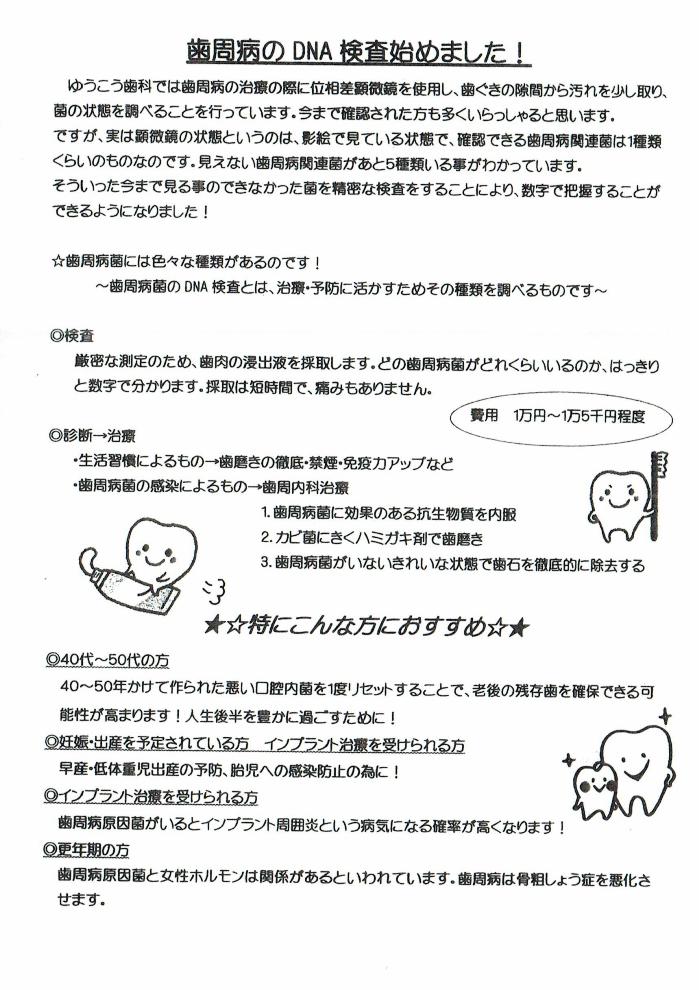 歯周病の DNA 検査始めました！
ゆうこう歯科では歯周病の治療の際に位相差顕微鏡を使用し、歯ぐきの隙間から汚れを少し取り、
菌の状態を調べることを行っています。今まで確認された方も多くいらっしゃると思います。
ですが、実は顕微鏡の状態というのは、影絵で見ている状態で、確認できる歯周病関連菌は1種類
くらいのものなのです。見えない歯周病関連菌があと5種類いる事がわかっています。
そういった今まで見る事のできなかった菌を精密な検査をすることにより、数字で把握することが
できるようになりました！
☆歯周病菌には色々な種類があるのです！
～歯周病菌の DNA 検査とは、治療・予防に活かすためその種類を調べるものです～
◎検査
厳密な測定のため、歯肉の浸出液を採取します。どの歯周病菌がどれくらいいるのか、はっきり
と数字で分かります。採取は短時間で、痛みもありません。
費用　1万円～1万5千円程度
◎診断→治療
・生活習慣によるもの→歯磨きの徹底・禁煙・免疫力アップなど
・歯周病菌の感染によるもの→歯周内科治療
1. 歯周病菌に効果のある抗生物質を内服
2. カビ菌にきくハミガキ剤で歯磨き
3. 歯周病菌がいないきれいな状態で歯石を徹底的に除去する
★☆特にこんな方におすすめ☆★
◎40代～50代の方
40～50年かけて作られた悪い口腔内菌を1度リセットすることで、老後の残存歯を確保できる可
能性が高まります！人生後半を豊かに過ごすために！
◎妊娠・出産を予定されている方　インプラント治療を受けられる方
早産・低体重児出産の予防、胎児への感染防止の為に！
◎インプラント治療を受けられる方
歯周病原因菌がいるとインプラント周囲炎という病気になる確率が高くなります！
◎更年期の方
歯周病原因菌と女性ホルモンは関係があるといわれています。歯周病は骨粗しょう症を悪化さ
せます。